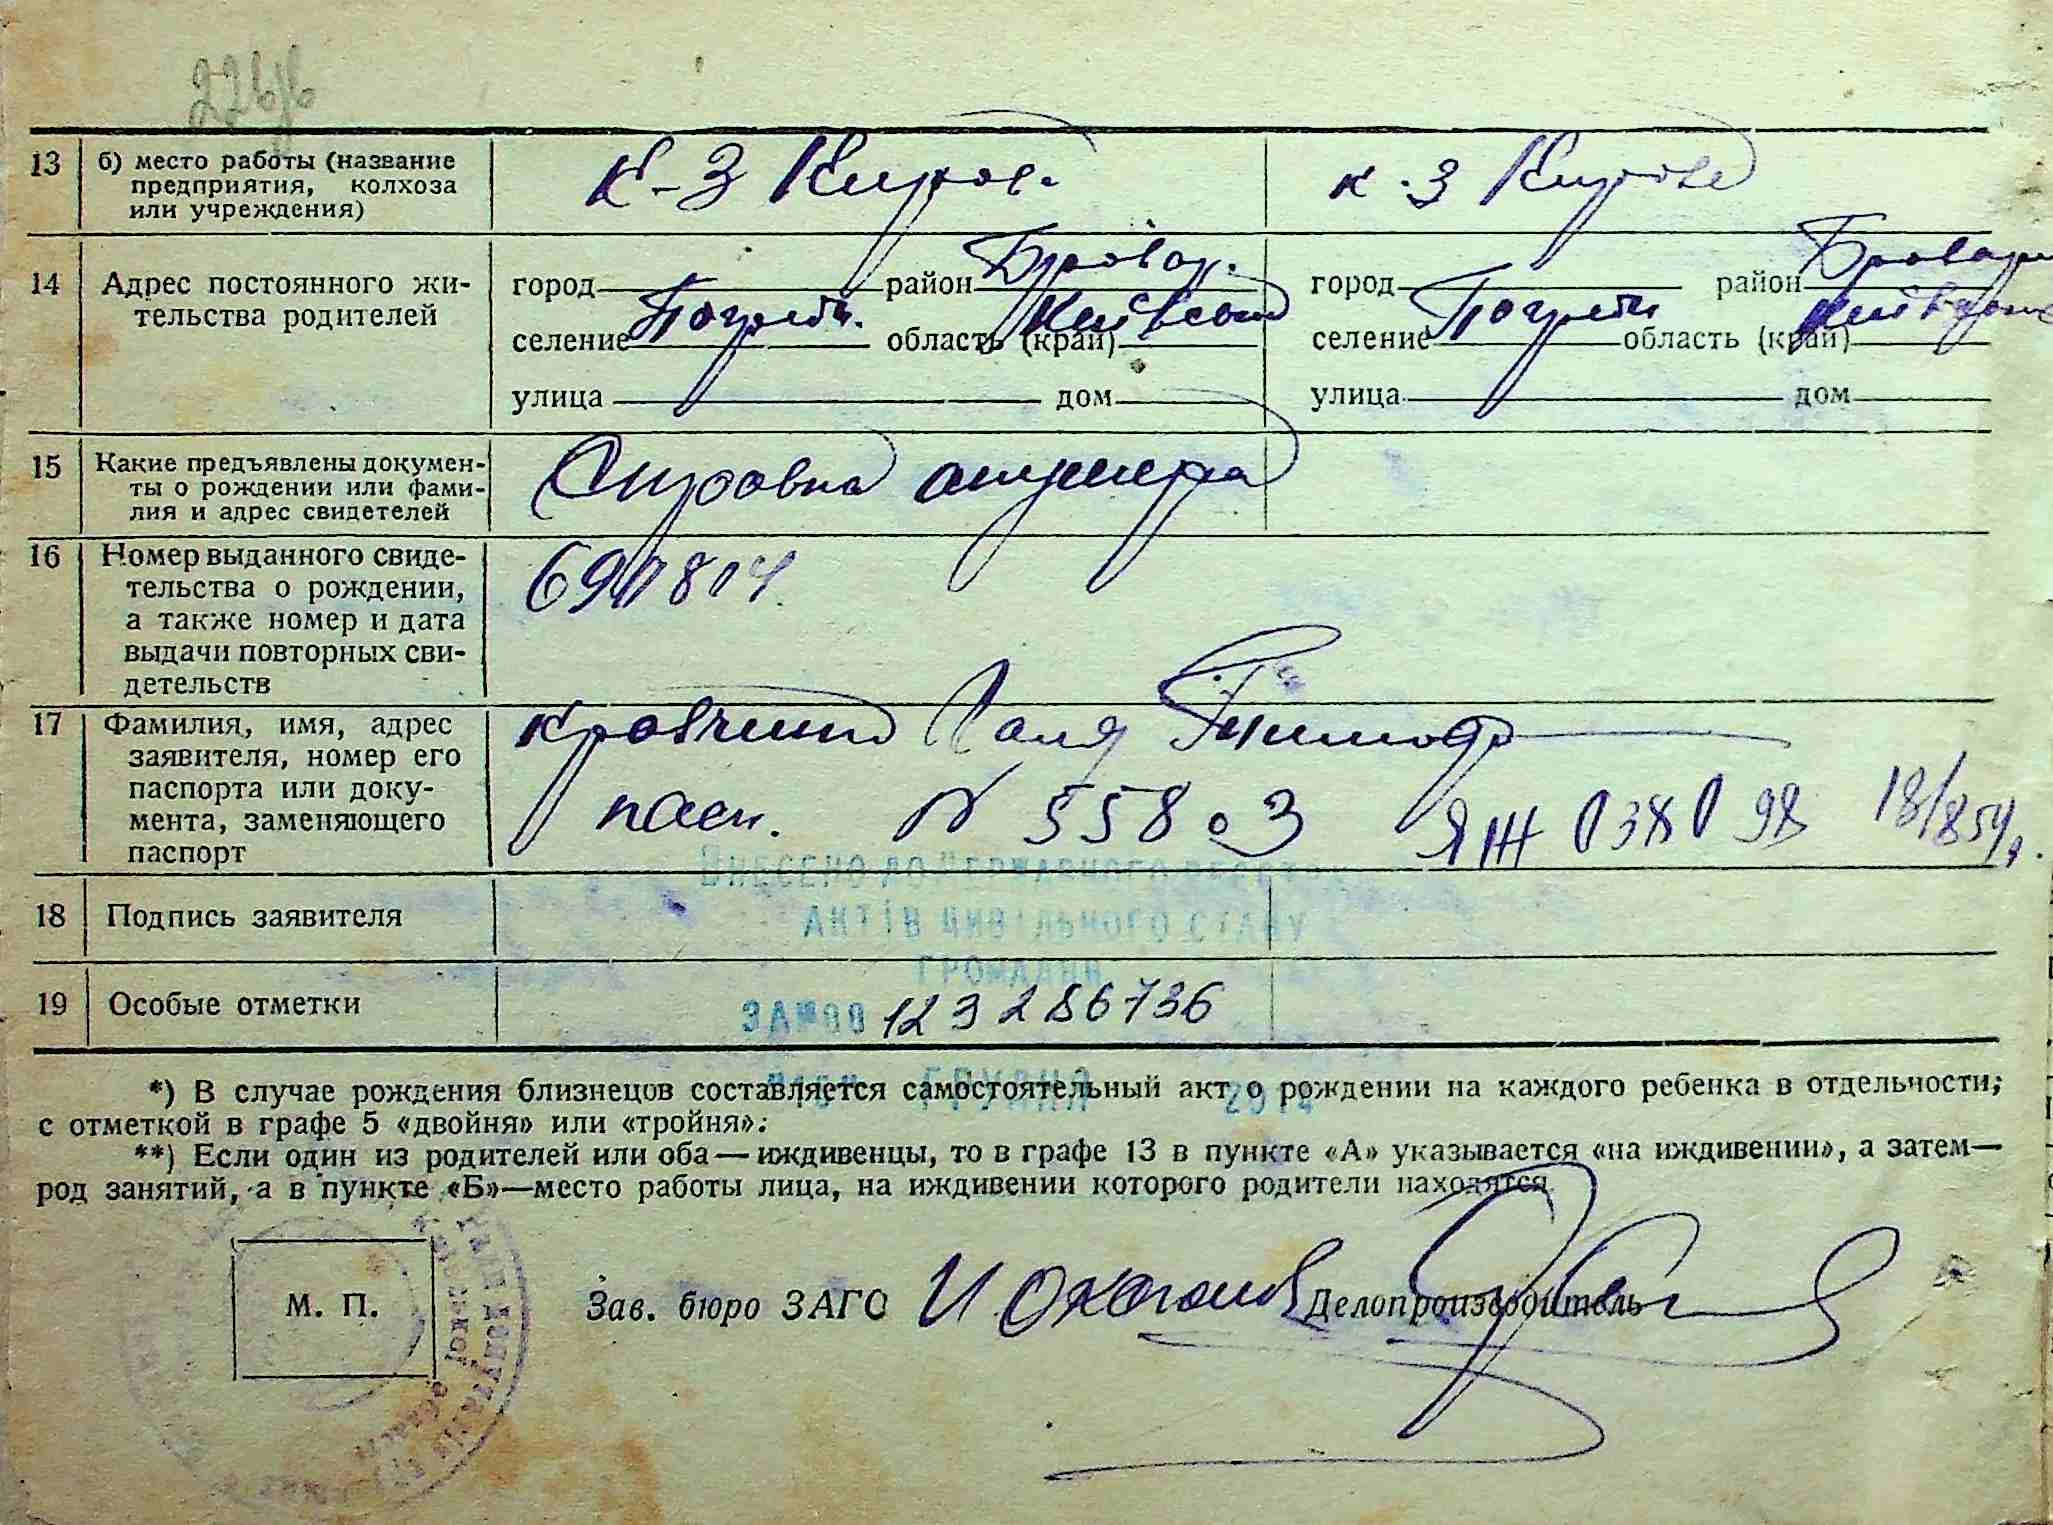 13 б) место работы (название предприятия, колхоза или учреждения) К-З Кирова к-з Кирова
14 Адрес постоянного жи-
тельства родителей
город район Бровар. город район Бровар
селение Погреби. область (край) Київська селение Погреби область (край) Київська
улица дом улица дом
15 Какие предъявлены докумен-
ты о рождении или фами-
лия и адрес свидетелей
16 Номер выданного свиде-
тельства о рождении,
а также номер и дата
выдачи повторных сви-
детельств
17 Фамилия, имя, адрес
заявителя, номер его
паспорта или доку-
мента, заменяющего
паспорт
Галя
пасп. N 55803 ЯЖ 18/8 54г.
18 Подпись заявителя
ВНЕСЕНО ДО ДЕРЖАВНОГО РЕЄСТРУ
АКТІВ ЦИВІЛЬНОГО СТАНУ
ГРОМАДЯН
19 Особые отметки
ЗА №00 123286736
ГРУДНЯ
*) В случае рождения близнецов составляется самостоятельный акт о рождении на каждого ребенка в отдельности;
с отметкой в графе 5 «двойня» или «тройня»;
**) Если один из родителей или оба—иждивенцы, то в графе 13 в пункте «А» указывается «на иждивении», а затем—
род занятий, а в пункте «Б»—место работы лица, на иждивении которого родители находятся.
М. П.
Зав. бюро ЗАГС Делопроизводитель